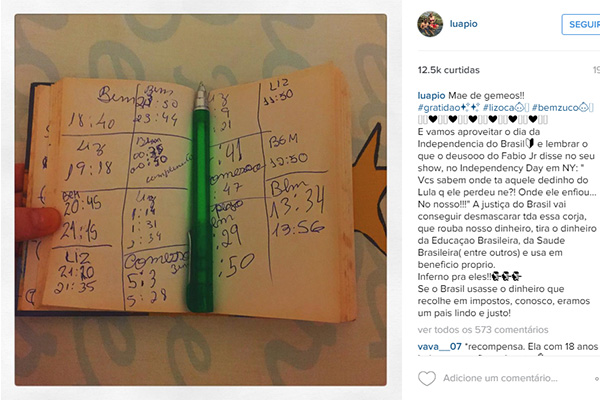 Bem
18:40
Liz
19:18
BEM
20:45
21:15
LIZ
21:20
21:35
Bem
23:44
Bem
00:50
Liz
1:14
1:31
5:28
:41
47
:29
:50
LIZ
11:50
BEM
10:50
Bem
13:34
13:56
luapio
SEGUIR
12.5k curtidas
luapio Mae de gemeos!!
#gratidao #lizoca #bemzuco
E vamos aproveitar o dia da
Independencia do Brasil e lembrar o
que o deusooo do Fabio Jr disse no seu
show, no Independency Day em NY: "
Vcs sabem onde ta aquele dedinho do
Lula q ele perdeu ne?! Onde ele enfiou...
No nosso!!!" A justiça do Brasil vai
conseguir desmascarar tda essa corja,
que rouba nosso dinheiro, tira o dinheiro
da Educaçao Brasileira, da Saude
Brasileira( entre outros) e usa em
beneficio proprio.
Inferno pra eles!!
Se o Brasil usasse o dinheiro que
recolhe em impostos, conosco, eramos
um pais lindo e justo!
ver todos os 573 comentários
vava__07 *recompensa. Ela com 18 anos
Adicione um comentário...